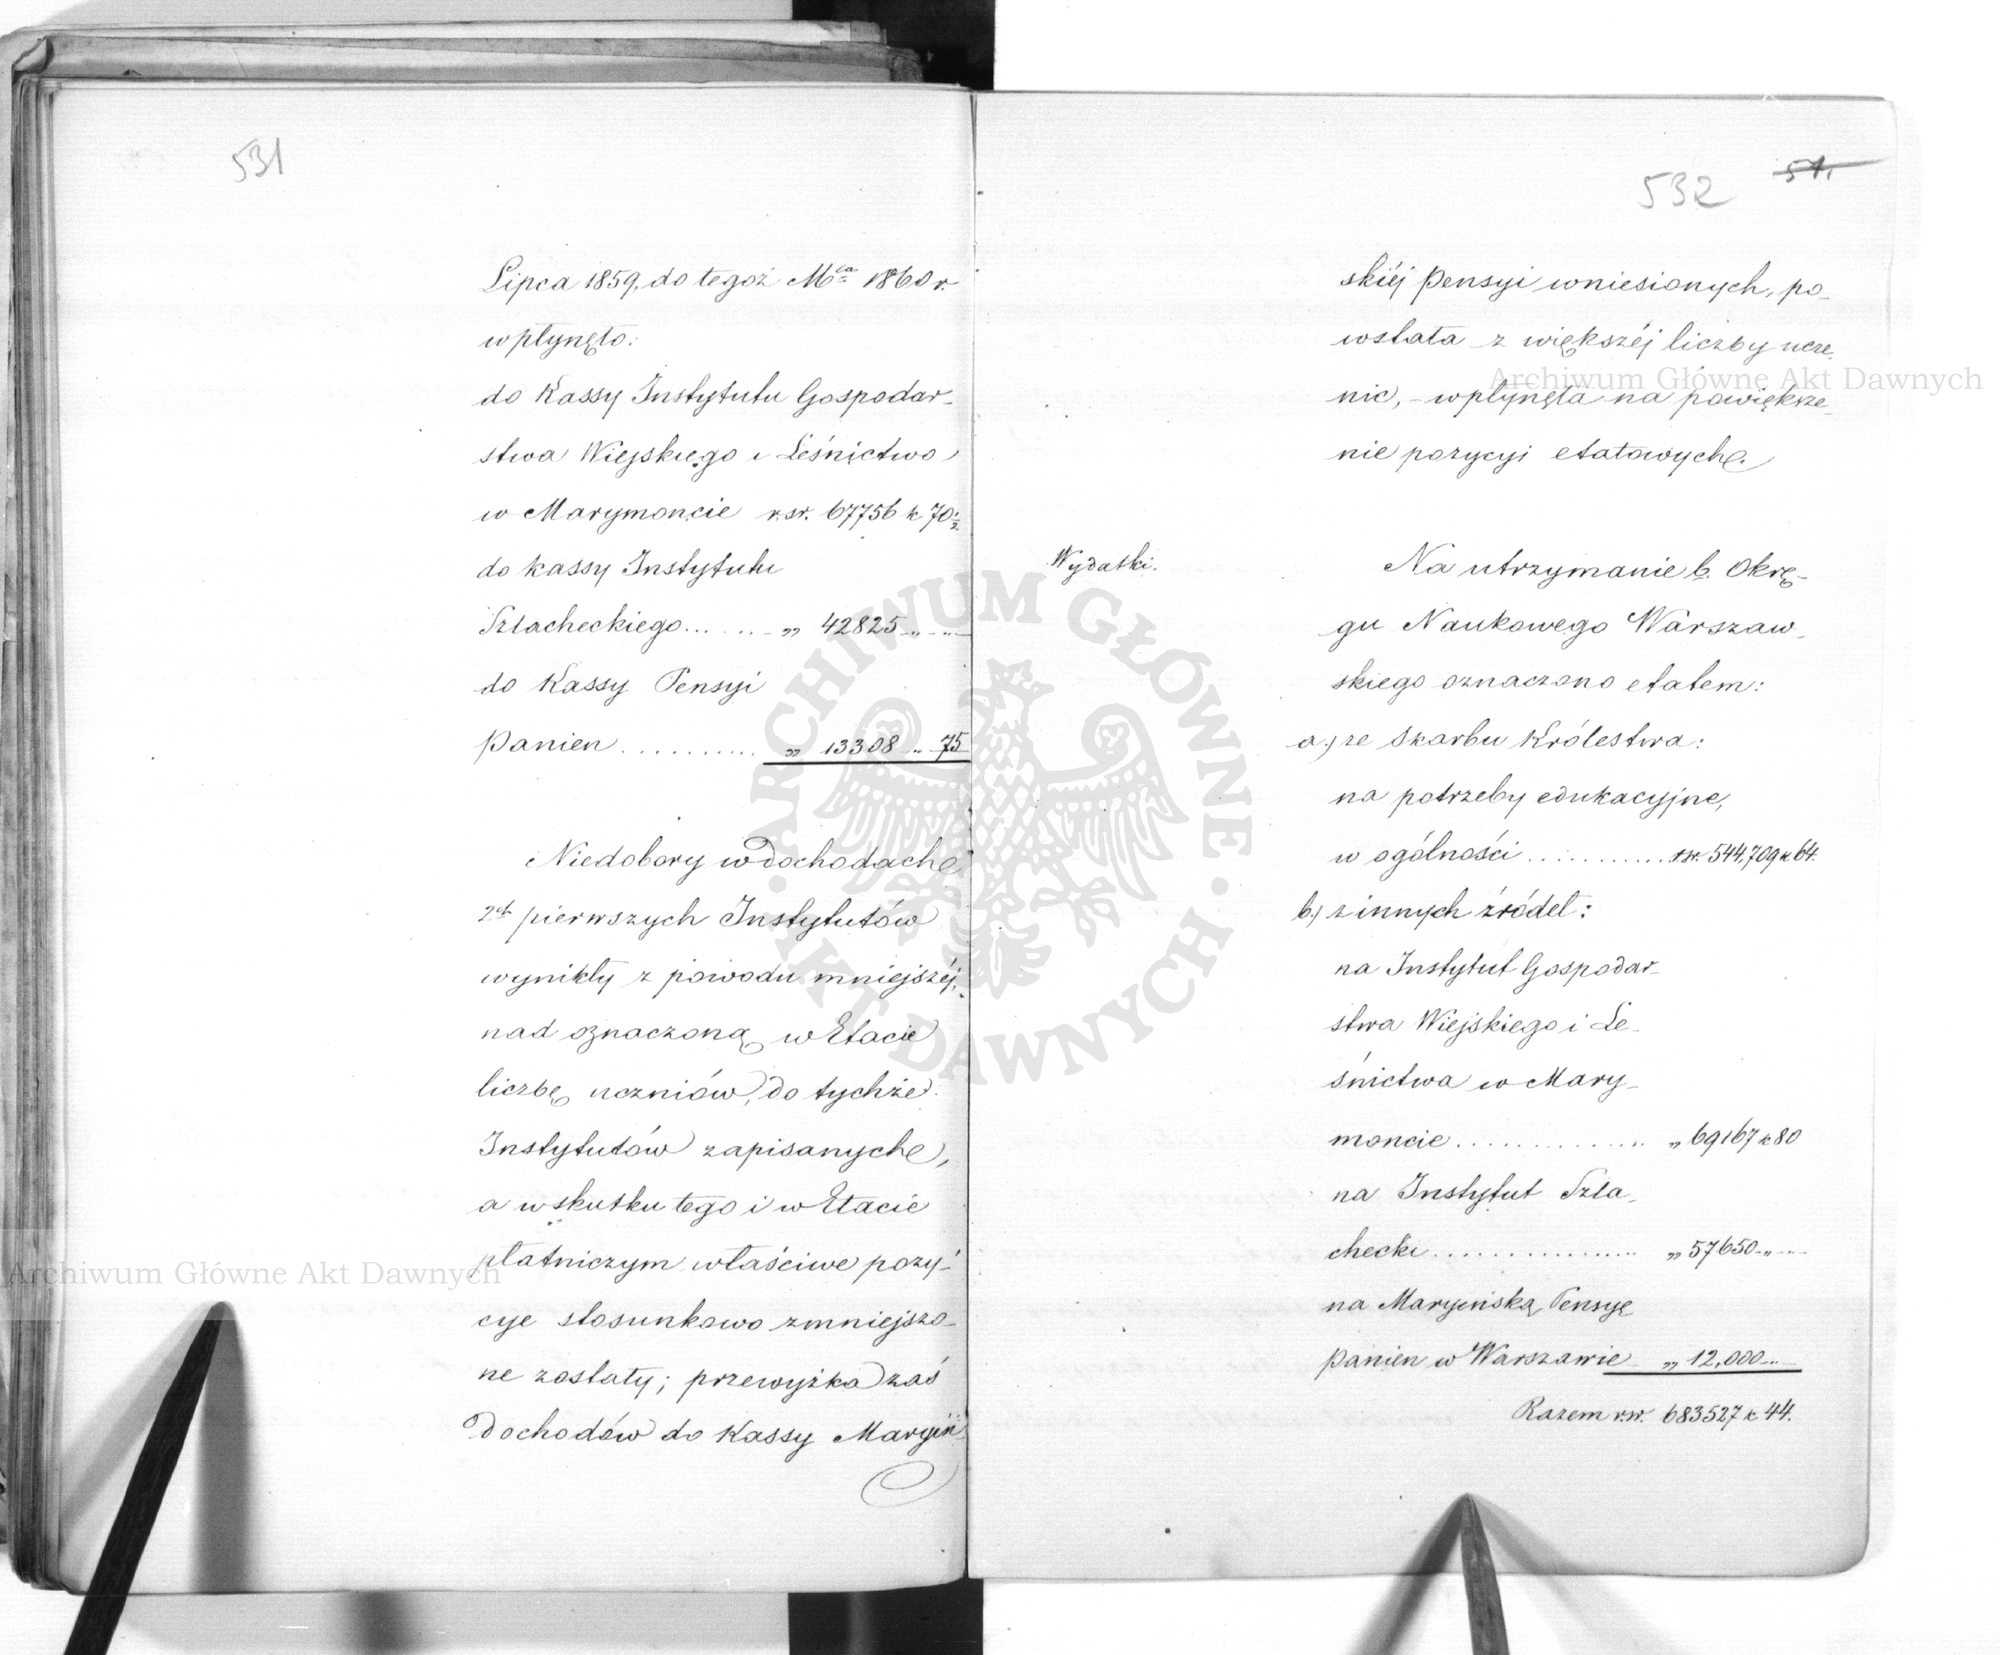 531
Lipca 1859, do tegoż Mca 1860 r.
wpłynęło:
do Kassy Instytutu Gospodar-
stwa Wiejskiego i Leśnictwa
w Marymoncie r.sr. 67756 k 70½
do kassy Instytutu
Szlacheckiego...... „ 42825 „ „
do Kassy Pensyi
Panien .......... „ 13308 „ 75
Niedobory w dochodach
2ch pierwszych Instytutów
wynikły z powodu mniejszéj,
nad oznaczoną w Etacie
liczbę uczniów, do tychże
Instytutów zapisanych,
a w skutku tego i w Etacie
płatniczym właściwe pozy-
cye stosunkowo zmniejszo-
ne zostały; przewyżka zaś
Dochodów do Kassy Maryiń-
532 51.
skiéj Pensyi wniesionych, po-
wstała z większéj liczby ucze-
nic, - wpłynęła na powiększe-
nie pozycyi etatowych.
Wydatki.
Na utrzymanie b. Okrę-
gu Naukowego Warszaw-
skiego oznaczono etatem:
a.) ze Skarbu Królestwa:
na potrzeby edukacyjne,
w ogólności ........... rsr. 544,709 k 64.
b.) z innych źródeł:
na Instytut Gospodar-
stwa Wiejskiego i Le-
śnictwa w Mary-
moncie .............. „ 69167 k 80
na Instytut Szla-
checki ................. „ 57650 „
na Maryińską Pensyę
Panien w Warszawie „ 12,000 „
Razem r.sr. 683527 k 44.
Archiwum Główne Akt Dawnych
Archiwum Główne Akt Dawnych
ARCHIWUM GŁÓWNE AKT DAWNYCH